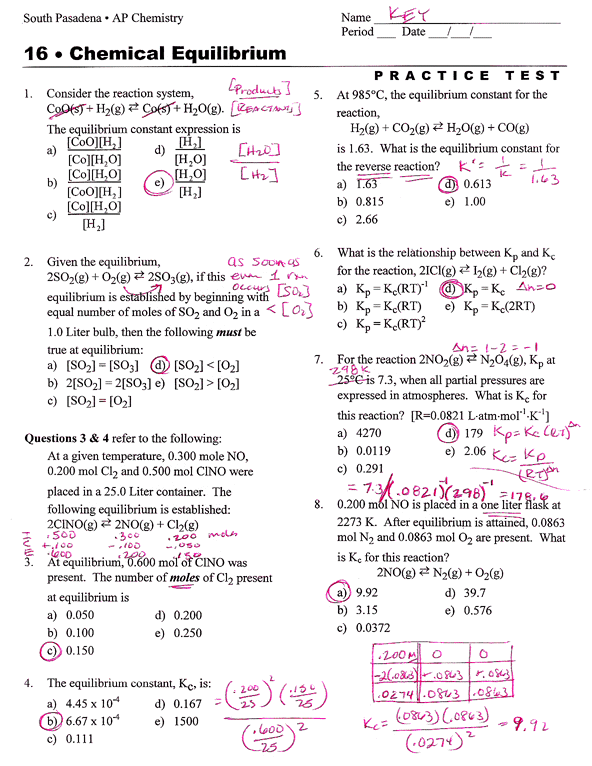 South Pasadena • AP Chemistry
Name KEY
Period ___ Date ___/___/___
16 • Chemical Equilibrium
PRACTICE TEST
1. Consider the reaction system,
CoO(s) + H₂(g) ⇄ Co(s) + H₂O(g).
[Products]
[REACTANTS]
The equilibrium constant expression is
a) [CoO][H₂]
[Co][H₂O]
b) [Co][H₂O]
[CoO][H₂]
c) [Co][H₂O]
[H₂]
d) [H₂]
[H₂O]
e) [H₂O]
[H₂]
[H₂O]
[H₂]
2. Given the equilibrium,
2SO₂(g) + O₂(g) ⇄ 2SO₃(g), if this
equilibrium is established by beginning with
equal number of moles of SO₂ and O₂ in a
1.0 Liter bulb, then the following must be
true at equilibrium:
as soon as
even 1 rxn
occurs [SO₂]
< [O₂]
a) [SO₂] = [SO₃] d) [SO₂] < [O₂]
b) 2[SO₂] = 2[SO₃] e) [SO₂] > [O₂]
c) [SO₂] = [O₂]
Questions 3 & 4 refer to the following:
At a given temperature, 0.300 mole NO,
0.200 mol Cl₂ and 0.500 mol ClNO were
placed in a 25.0 Liter container. The
following equilibrium is established:
2ClNO(g) ⇄ 2NO(g) + Cl₂(g)
I .500 .300 .200 moles
+.100 -.100 -.050
E .600 .200 .150
3. At equilibrium, 0.600 mol of ClNO was
present. The number of moles of Cl₂ present
at equilibrium is
a) 0.050 d) 0.200
b) 0.100 e) 0.250
c) 0.150
4. The equilibrium constant, Kc, is:
a) 4.45 x 10⁻⁴ d) 0.167
b) 6.67 x 10⁻⁴ e) 1500
c) 0.111
= (.200/25)² (.150/25)
(.600/25)²
5. At 985°C, the equilibrium constant for the
reaction,
H₂(g) + CO₂(g) ⇄ H₂O(g) + CO(g)
is 1.63. What is the equilibrium constant for
the reverse reaction? K' = 1/K = 1/1.63
a) 1.63 d) 0.613
b) 0.815 e) 1.00
c) 2.66
6. What is the relationship between Kp and Kc
for the reaction, 2ICl(g) ⇄ I₂(g) + Cl₂(g)?
a) Kp = Kc(RT)⁻¹ d) Kp = Kc Δn=0
b) Kp = Kc(RT) e) Kp = Kc(2RT)
c) Kp = Kc(RT)²
Δn = 1-2 = -1
7. For the reaction 2NO₂(g) ⇄ N₂O₄(g), Kp at
298K
25°C is 7.3, when all partial pressures are
expressed in atmospheres. What is Kc for
this reaction? [R=0.0821 L·atm·mol⁻¹·K⁻¹]
a) 4270 d) 179 Kp = Kc(RT)^Δn
b) 0.0119 e) 2.06 Kc = Kp
c) 0.291 (RT)^Δn
= 7.3/(.0821)⁻¹(298)⁻¹ = 178.6
8. 0.200 mol NO is placed in a one liter flask at
2273 K. After equilibrium is attained, 0.0863
mol N₂ and 0.0863 mol O₂ are present. What
is Kc for this reaction?
2NO(g) ⇄ N₂(g) + O₂(g)
a) 9.92 d) 39.7
b) 3.15 e) 0.576
c) 0.0372
.200M 0 0
-2(.0863) +.0863 +.0863
.0274 .0863 .0863
Kc = (.0863)(.0863) = 9.92
(.0274)²